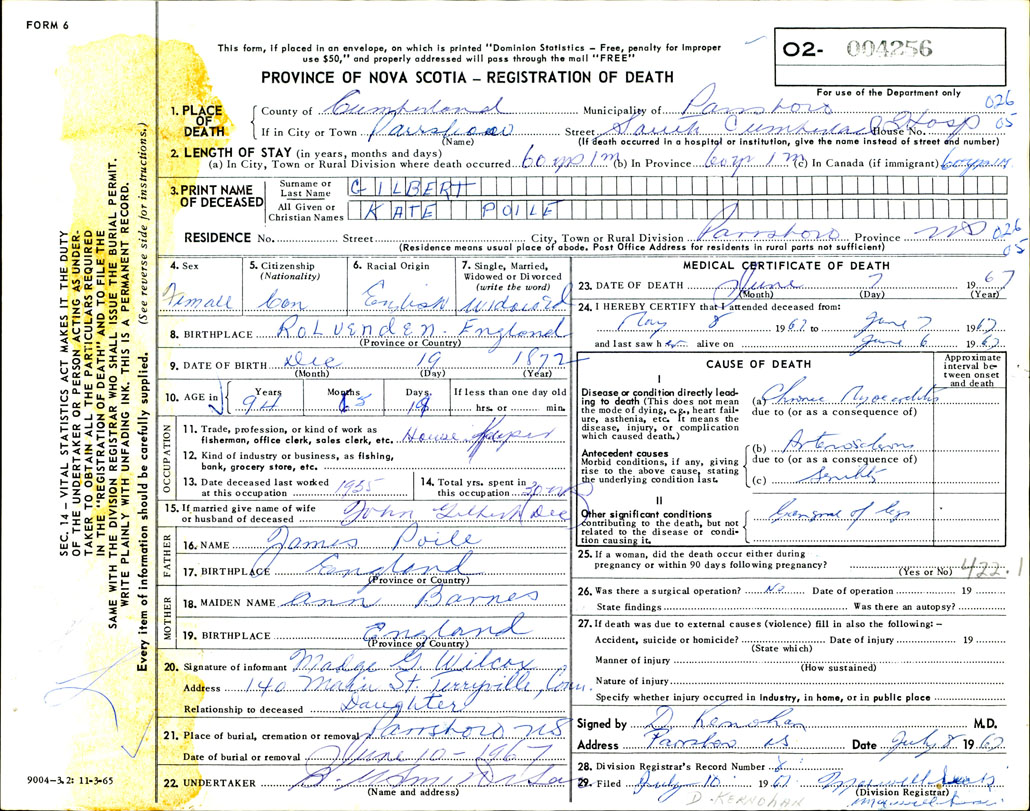 FORM 6
This form, if placed in an envelope, on which is printed "Dominion Statistics – Free, penalty for improper
use $50," and properly addressed will pass through the mail "FREE"
PROVINCE OF NOVA SCOTIA – REGISTRATION OF DEATH
02- 004256
For use of the Department only
026
05
1. PLACE OF DEATH
County of Cumberland Municipality of Parrsboro
If in City or Town Parrsboro Street South Cumberland House No. Hosp
(Name) (If death occurred in a hospital or institution, give the name instead of street and number)
2. LENGTH OF STAY (in years, months and days)
(a) In City, Town or Rural Division where death occurred 60 yrs 1 m (b) In Province 60 yrs 1 m (c) In Canada (if immigrant) 60 yrs 1 m
3. PRINT NAME OF DECEASED
Surname or Last Name GILBERT
All Given or Christian Names KATE POILE
RESIDENCE No. Street City, Town or Rural Division Parrsboro Province NS 026
05
(Residence means usual place of abode. Post Office Address for residents in rural parts not sufficient)
4. Sex Female
5. Citizenship (Nationality) Can
6. Racial Origin English
7. Single, Married, Widowed or Divorced (write the word) Widowed
8. BIRTHPLACE Rolvenden. England
(Province or Country)
9. DATE OF BIRTH Dec 19 1872
(Month) (Day) (Year)
10. AGE in Years 94 Months 5 Days 18 If less than one day
hrs. or min.
OCCUPATION
11. Trade, profession, or kind of work as
fisherman, office clerk, sales clerk, etc. House Keeper
12. Kind of industry or business, as fishing,
bank, grocery store, etc.
13. Date deceased last worked
at this occupation 1955
14. Total yrs. spent in
this occupation
15. If married give name of wife
or husband of deceased John Gilbert Dec
FATHER
16. NAME James Poile
17. BIRTHPLACE England
(Province or Country)
MOTHER
18. MAIDEN NAME Ann Barnes
19. BIRTHPLACE England
(Province or Country)
20. Signature of informant Madge G. Wilcox
Address 140 Main St. Terryville, Conn.
Relationship to deceased Daughter
21. Place of burial, cremation or removal Parrsboro NS
Date of burial or removal June 10 - 1967
22. UNDERTAKER
(Name and address)
MEDICAL CERTIFICATE OF DEATH
23. DATE OF DEATH June 7 1967
(Month) (Day) (Year)
24. I HEREBY CERTIFY that I attended deceased from:
May 8 1967 to June 7 1967
and last saw her alive on June 6 1967
CAUSE OF DEATH
Approximate
interval be-
tween onset
and death
I
Disease or condition directly lead-
ing to death (This does not mean
the mode of dying, e.g., heart fail-
ure, asthenia, etc. It means the
disease, injury, or complication
which caused death.)
(a) Chronic Myocarditis
due to (or as a consequence of)
Antecedent causes
Morbid conditions, if any, giving
rise to the above cause, stating
the underlying condition last.
(b) Arteriosclerosis
due to (or as a consequence of)
(c) Senility
II
Other significant conditions
contributing to the death, but not
related to the disease or condi-
tion causing it.
Gangrene of legs
25. If a woman, did the death occur either during
pregnancy or within 90 days following pregnancy?
(Yes or No) 422.1
26. Was there a surgical operation? No Date of operation 19
State findings Was there an autopsy?
27. If death was due to external causes (violence) fill in also the following: –
Accident, suicide or homicide? Date of injury 19
(State which)
Manner of injury
(How sustained)
Nature of injury
Specify whether injury occurred in industry, in home, or in public place
Signed by D Kernohan M.D.
Address Parrsboro NS Date July 8 1967
28. Division Registrar's Record Number 8
29. Filed July 10 1967
(Division Registrar)
D. KERNOHAN
SEC. 14 – VITAL STATISTICS ACT MAKES IT THE DUTY
OF THE UNDERTAKER OR PERSON ACTING AS UNDER-
TAKER TO OBTAIN ALL THE PARTICULARS REQUIRED
IN THE "REGISTRATION OF DEATH" AND TO FILE THE
SAME WITH THE DIVISION REGISTRAR WHO SHALL ISSUE THE BURIAL PERMIT.
WRITE PLAINLY WITH UNFADING INK. THIS IS A PERMANENT RECORD.
Every item of information should be carefully supplied. (See reverse side for instructions.)
9004-3.2: 11-3-65